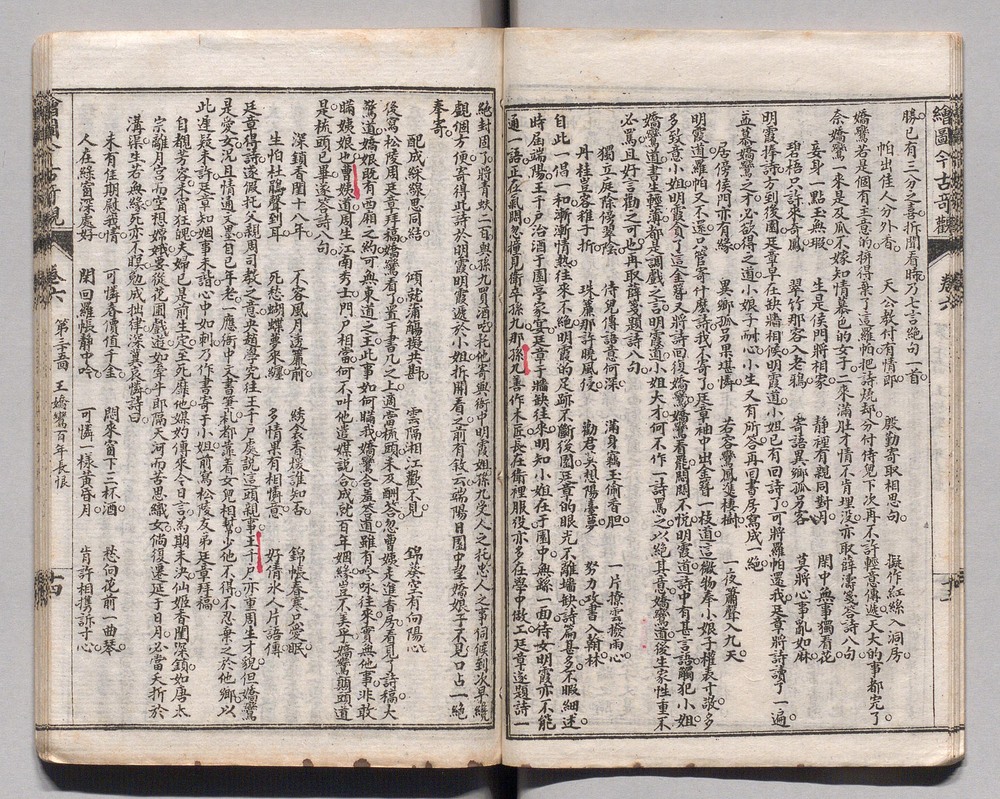 繪圖今古奇觀
卷六
勝已有三分之喜拆開看時乃七言絕句一首
帕出佳人分外香 天公教付有情郎 殷勤寄取相思句 擬作紅絲入洞房
嬌鸞若是個有主意的拚得棄了這羅帕把詩燒却分付侍兒下次再不許輕意傳遞天大的事都完了
奈嬌鸞一來是及瓜不嫁知情慕色的女子二來滿肚才情不肯埋沒亦取薛濤箋答詩八句
妾身一點玉無瑕 生是侯門將相家 靜裡有親同對月 閒中無事獨看花
碧梧只許來奇鳳 翠竹那容入老鴉 寄語異鄉孤另客 莫將心事亂如麻
明霞捧詩方到後園廷章早在缺牆相候明霞道小姐已有回詩了可將羅帕還我廷章將詩讀了一遍
益慕嬌鸞之才必欲得之道小娘子耐心小生又有所答再回書房寫成一絕
居傍侯門亦有緣 異鄉孤另果堪憐 若容鸞鳳雙棲樹 一夜簫聲入九天
明霞道羅帕又不還只管寄什麼詩我不寄了廷章袖中出金簪一枝道這微物奉小娘子權表寸敬多
多致意小姐明霞貪了這金簪又將詩回復嬌鸞嬌鸞看罷悶悶不悅明霞道詩中有甚言語觸犯小姐
嬌鸞道書生輕薄都是調戲之言明霞道小姐大才何不作一詩罵之以絕其意嬌鸞道後生家性重不
必罵且好言勸之可也再取薛箋題詩八句
獨立庭除傍翠陰 侍兒傳語意何深 滿身竊玉偷香胆 一片撩雲撥雨心
丹桂豈容稚子折 珠簾那許曉風侵 勸君莫想陽臺夢 努力攻書入翰林
自此一倡一和漸漸情熱往來不絕明霞的足跡不斷後園廷章的眼光不離墻缺詩篇甚多不暇細述
時屆端陽王千戶治酒于園亭家宴廷章于牆缺往來明知小姐在于園中無緣一面侍女明霞亦不能
通一語正在氣悶忽撞見衛卒孫九那孫九善作木匠長在衛裡服役亦多在學中做工廷章遂題詩一
絕封固了將青蚨二百與孫九買酒吃托他寄與衙中明霞姐孫九受人之托忠人之事伺候到次早纔
覷個方便寄得此詩於明霞明霞遞於小姐拆開看之前有敘云端陽日園中望嬌娘子不見口占一絕
奉寄
配成綵線思同結 傾就蒲觴擬共斟 霧隔湘江歡不見 錦葵空有向陽心
後寫松陵周廷章拜稿嬌鸞看了置于書几之上適當梳頭未及酬答忽曹姨走進香房看見了詩稿大
驚道嬌娘既有西廂之約可無東道之主此事如何瞞我嬌鸞含羞答道雖有吟咏往來實無他事非敢
瞞姨娘也曹姨道周生江南秀士門戶相當何不叫他遣媒說合成就百年姻緣豈不美乎嬌鸞點頭道
是梳頭已畢遂答詩八句
深鎖香閨十八年 不容風月透簾前 綉衾香煖誰知否 錦帳春寒只愛眠
生怕杜鵑聲到耳 死愁蝴蝶夢來纏 多情果有相憐意 好倩氷人片語傳
廷章得詩遂假托父親周司教之意央趙學究往王千戶處說這頭親事王千戶亦重周生才貌但嬌鸞
是愛女況且精通文墨自己年老一應衛中文書筆札都靠着女兒相幫少他不得不忍棄之於他鄉以
此遲疑未許廷章知姻事未諧心中如刺乃作書寄于小姐前寫松陵友弟廷章拜稿
自觀芳容未寧狂魄夫婦已是前生定至死靡他媒妁傳來今日言為期未決仙姬香閨深鎖如唐太
宗離月宮而空想嫦娥要從花圃戲遊如牽牛郎隔天河而苦思織女倘復遷延于日月必當夭折於
溝渠生若無緣死亦不瞑勉成拙律深冀哀憐詩曰
未有佳期慰我情 可憐春價值千金 悶來窗下三杯酒 愁向花前一曲琴
人在綉窗深處好 閉回羅帳靜中吟 可憐一樣黃昏月 肯許相携訴寸心
卷六
第三十五回 王嬌鸞百年長恨
十四